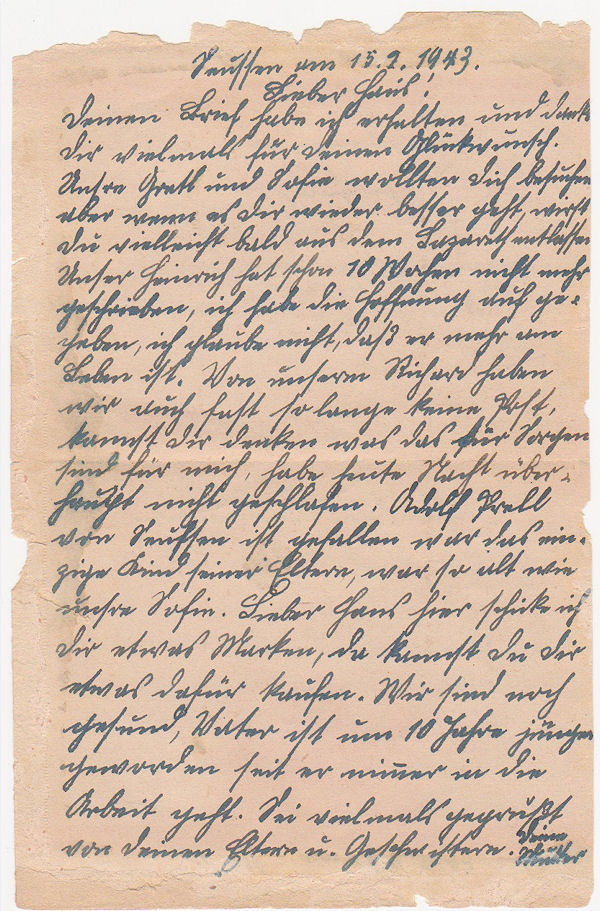 Seussen am 15.9.1943.
Lieber Hans!
Deinen Brief habe ich erhalten und danke
dir vielmals für deinen Glückwunsch.
Unsre Gretl und Sofie wollten dich besuchen
aber wenn es dir wieder besser geht, wirst
du vielleicht bald aus dem Lazareth entlassen
Unser Heinrich hat schon 10 Wochen nicht mehr
geschrieben, ich habe die Hoffnung auf ge-
geben, ich glaube nicht, daß er mehr am
Leben ist. Von unserm Richard haben
wir auch fast so lange keine Post,
kannst dir denken was das für Sorgen
sind für mich, habe heute Nacht über-
haupt nicht geschlafen. Adolf Prell
von Seußen ist gefallen war das ein-
zige Kind seiner Eltern, war so alt wie
unsre Sofie. Lieber Hans hier schicke ich
dir etwas Marken, da kannst du dir
etwas dafür kaufen. Wir sind noch
gesund, Vater ist um 10 Jahre jünger
geworden seit er nimmer in die
Arbeit geht. Sei vielmals gegrüßt
von deinen Eltern u. Geschwistern. Deine
Mutter